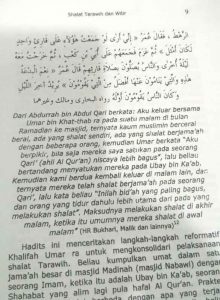 Shalat Tarawih dan Witir 9
الرَّهْطُ ، فَقَالَ عُمَرُ : إِنِّي أَرَى لَوْ جَمَعْتُ هَؤُلَاءِ عَلَى قَارِئٍ وَاحِدٍ
لَكَانَ أَمْثَلَ ، ثُمَّ عَزَمَ فَجَمَعَهُمْ عَلَى أُبَيِّ بْنِ كَعْبٍ
قَالَ عُمَرُ : نِعْمَ الْبِدْعَةُ
وَكَانَ النَّاسُ يَقُومُونَ أَوَّلَهُ رواه البخارى ومالك وغيرهما
Dari Abdurrah bin Abdul Qari berkata: Aku keluar bersama
Umar bin Khat-thab ra pada suatu malam di bulan
Ramadan ke masjid, ternyata kaum muslimin bercerai
berai, ada yang shalat sendiri, ada yang shalat berjama'ah
dengan beberapa orang, kemudian Umar berkata" Aku
berpikir, bila saja mereka saya satukan pada seorang
Qari' (ahli Al Qur'an) niscaya lebih bagus", lalu beliau
bertandang menyatukan mereka pada Ubay bin Ka'ab.
Kemudian kami berdua kembali keluar di malam lain, dan
ternyata mereka telah shalat berjama'ah pada seorang
Qari', lalu kata beliau "Inilah bid'ah yang paling bagus,
dan orang yang tidur dahulu lebih utama dari pada yang
melakukan shalat". Maksudnya melakukan shalat di akhir
malam, ketika itu ummunnya mereka shalat di awal
malam" (HR Bukhari, Malik dan lainnya)
Hadits ini menceritakan langkah-langkah reformatif
Khalifah Umar ra untuk mengkonsolidasi pelaksanaan
shalat Tarawih. Beliau kumpulkan umat dalam satu
jama'ah besar di masjid Madinah (masjid Nabawi) dengan
seorang Imam, ketika itu adalah Ubay bin Ka'ab, seorang
Shahabat yang alim lagi pula hafal Al Qur'an.
dengan apa yang